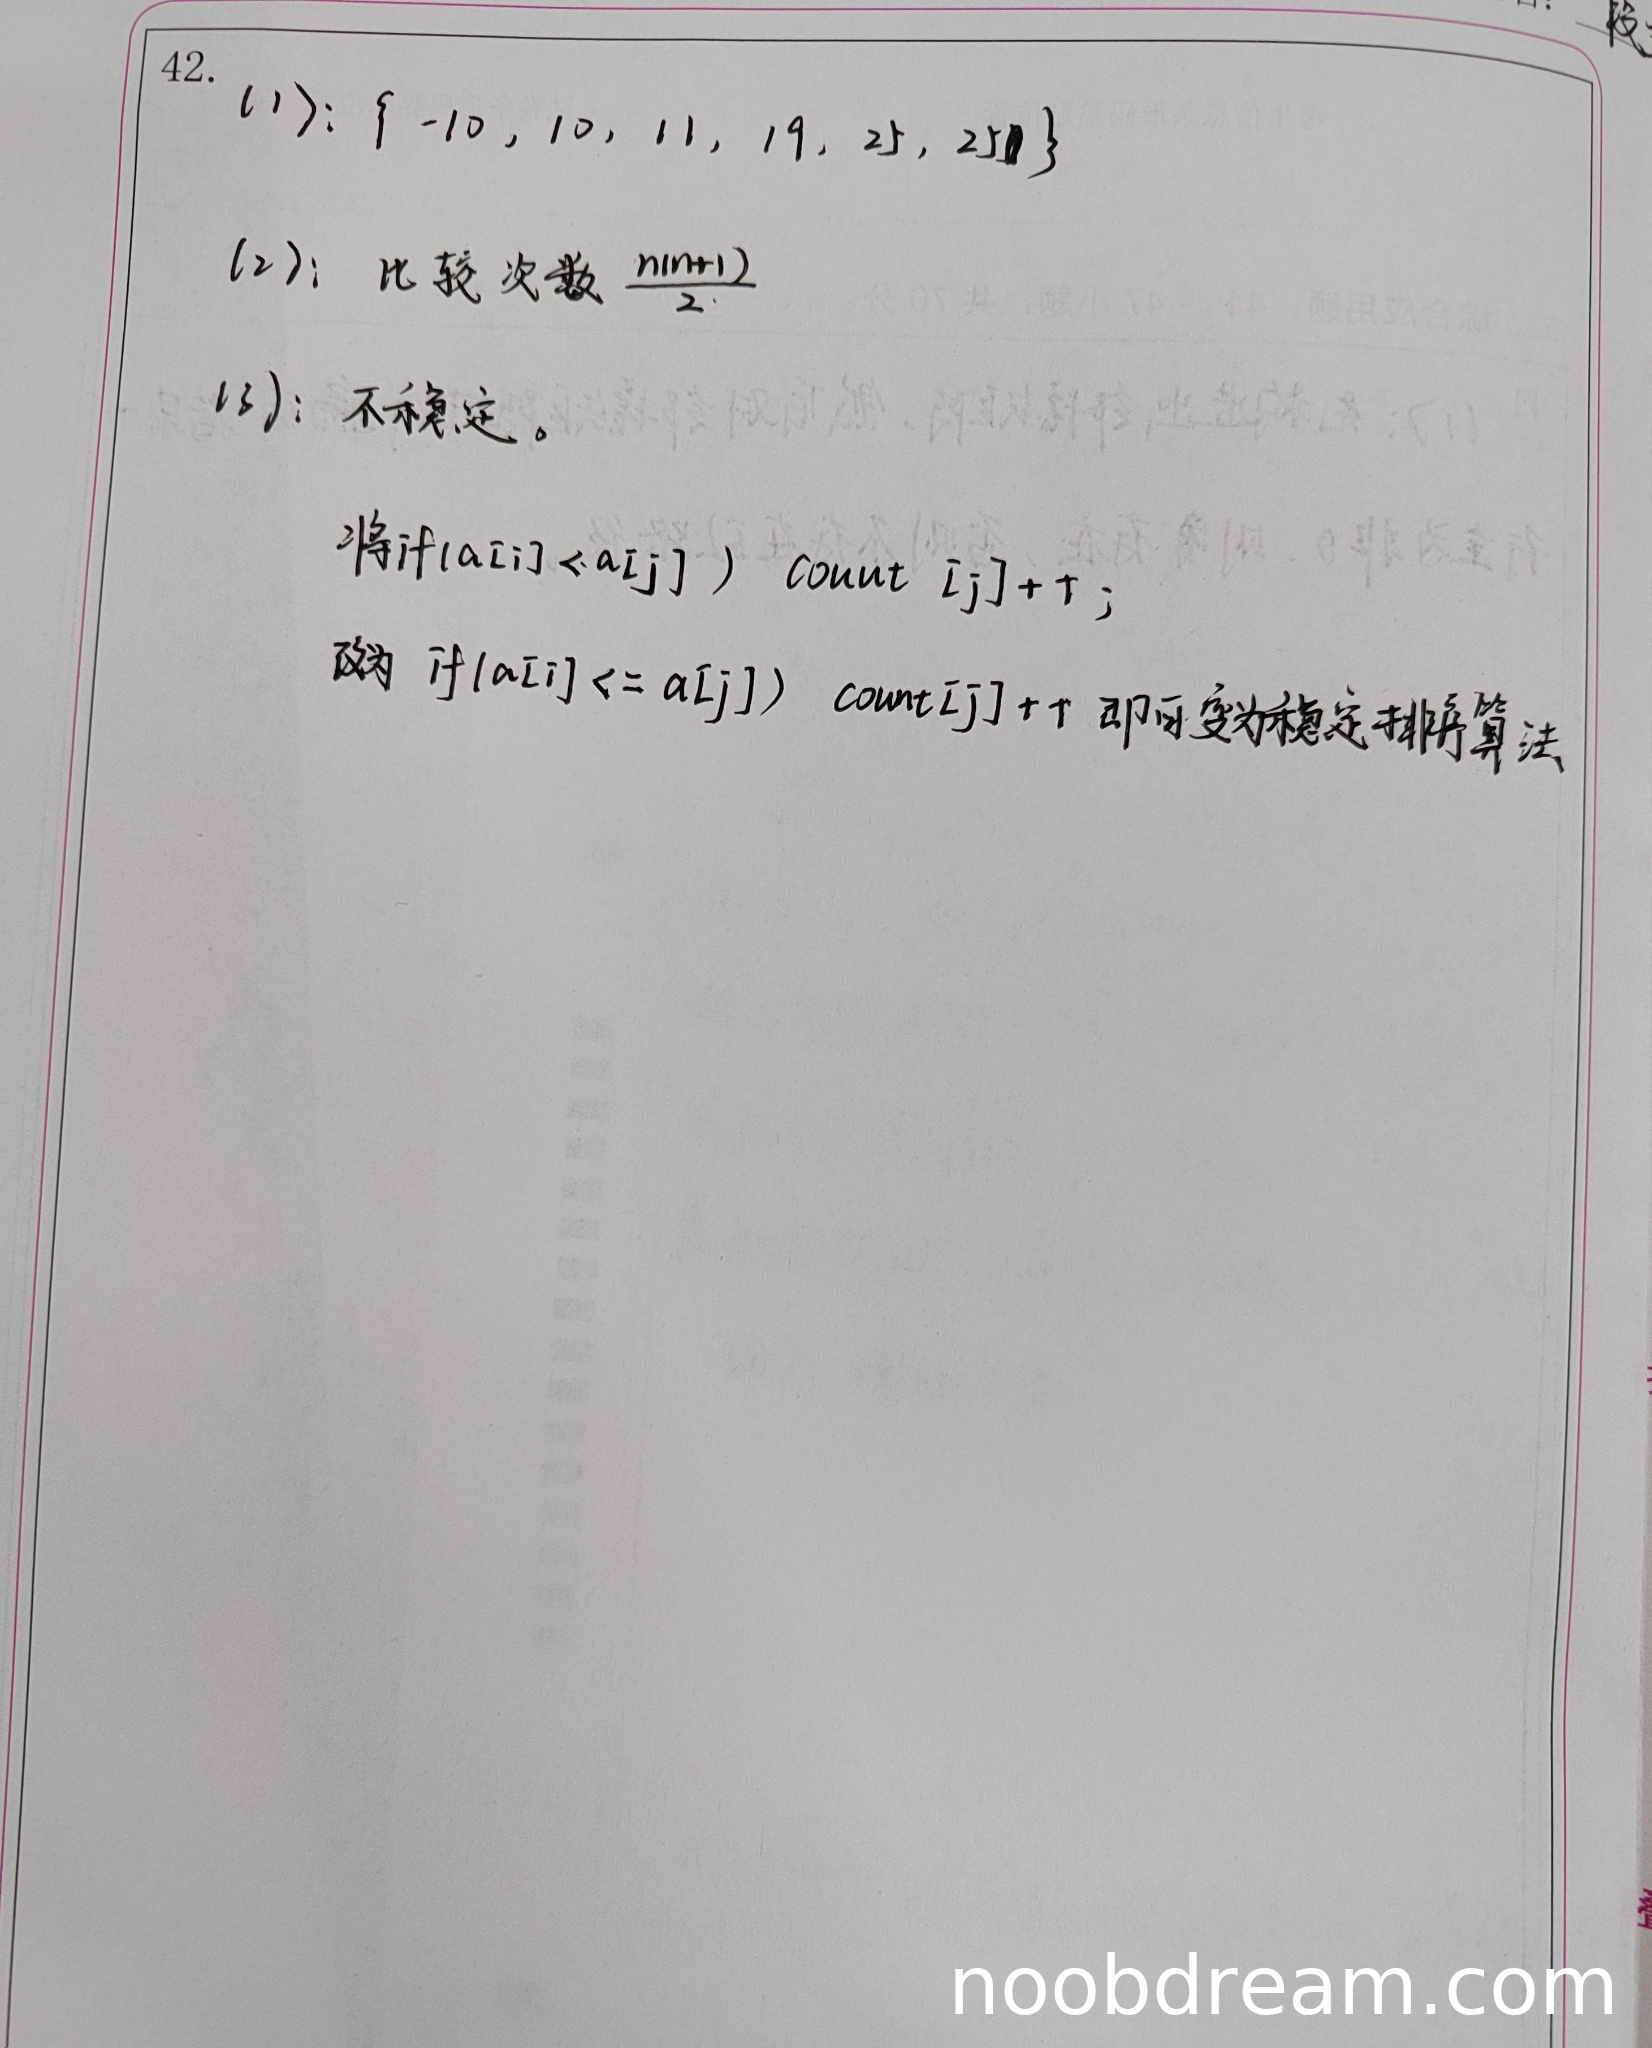 42.
(1): { -10, 10, 11, 19, 25, 25 }
(2): 比较次数 n(n+1)/2
(3): 不稳定。
将if(a[i] < a[j]) count [j]++;
改为 if(a[i] <= a[j]) count[j]++ 即可变为稳定排序算法
noobdream.com